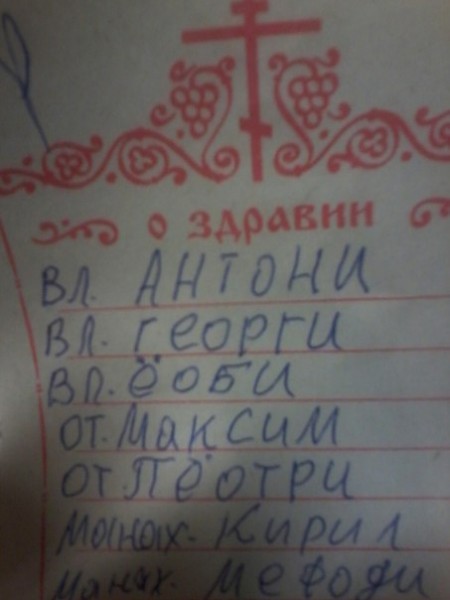 о здравии
Вл. Антони
Вл. Георги
Вл. Ёоби
от. Максим
от Пёотри
Манах. Кирил
Манах. Мефоди